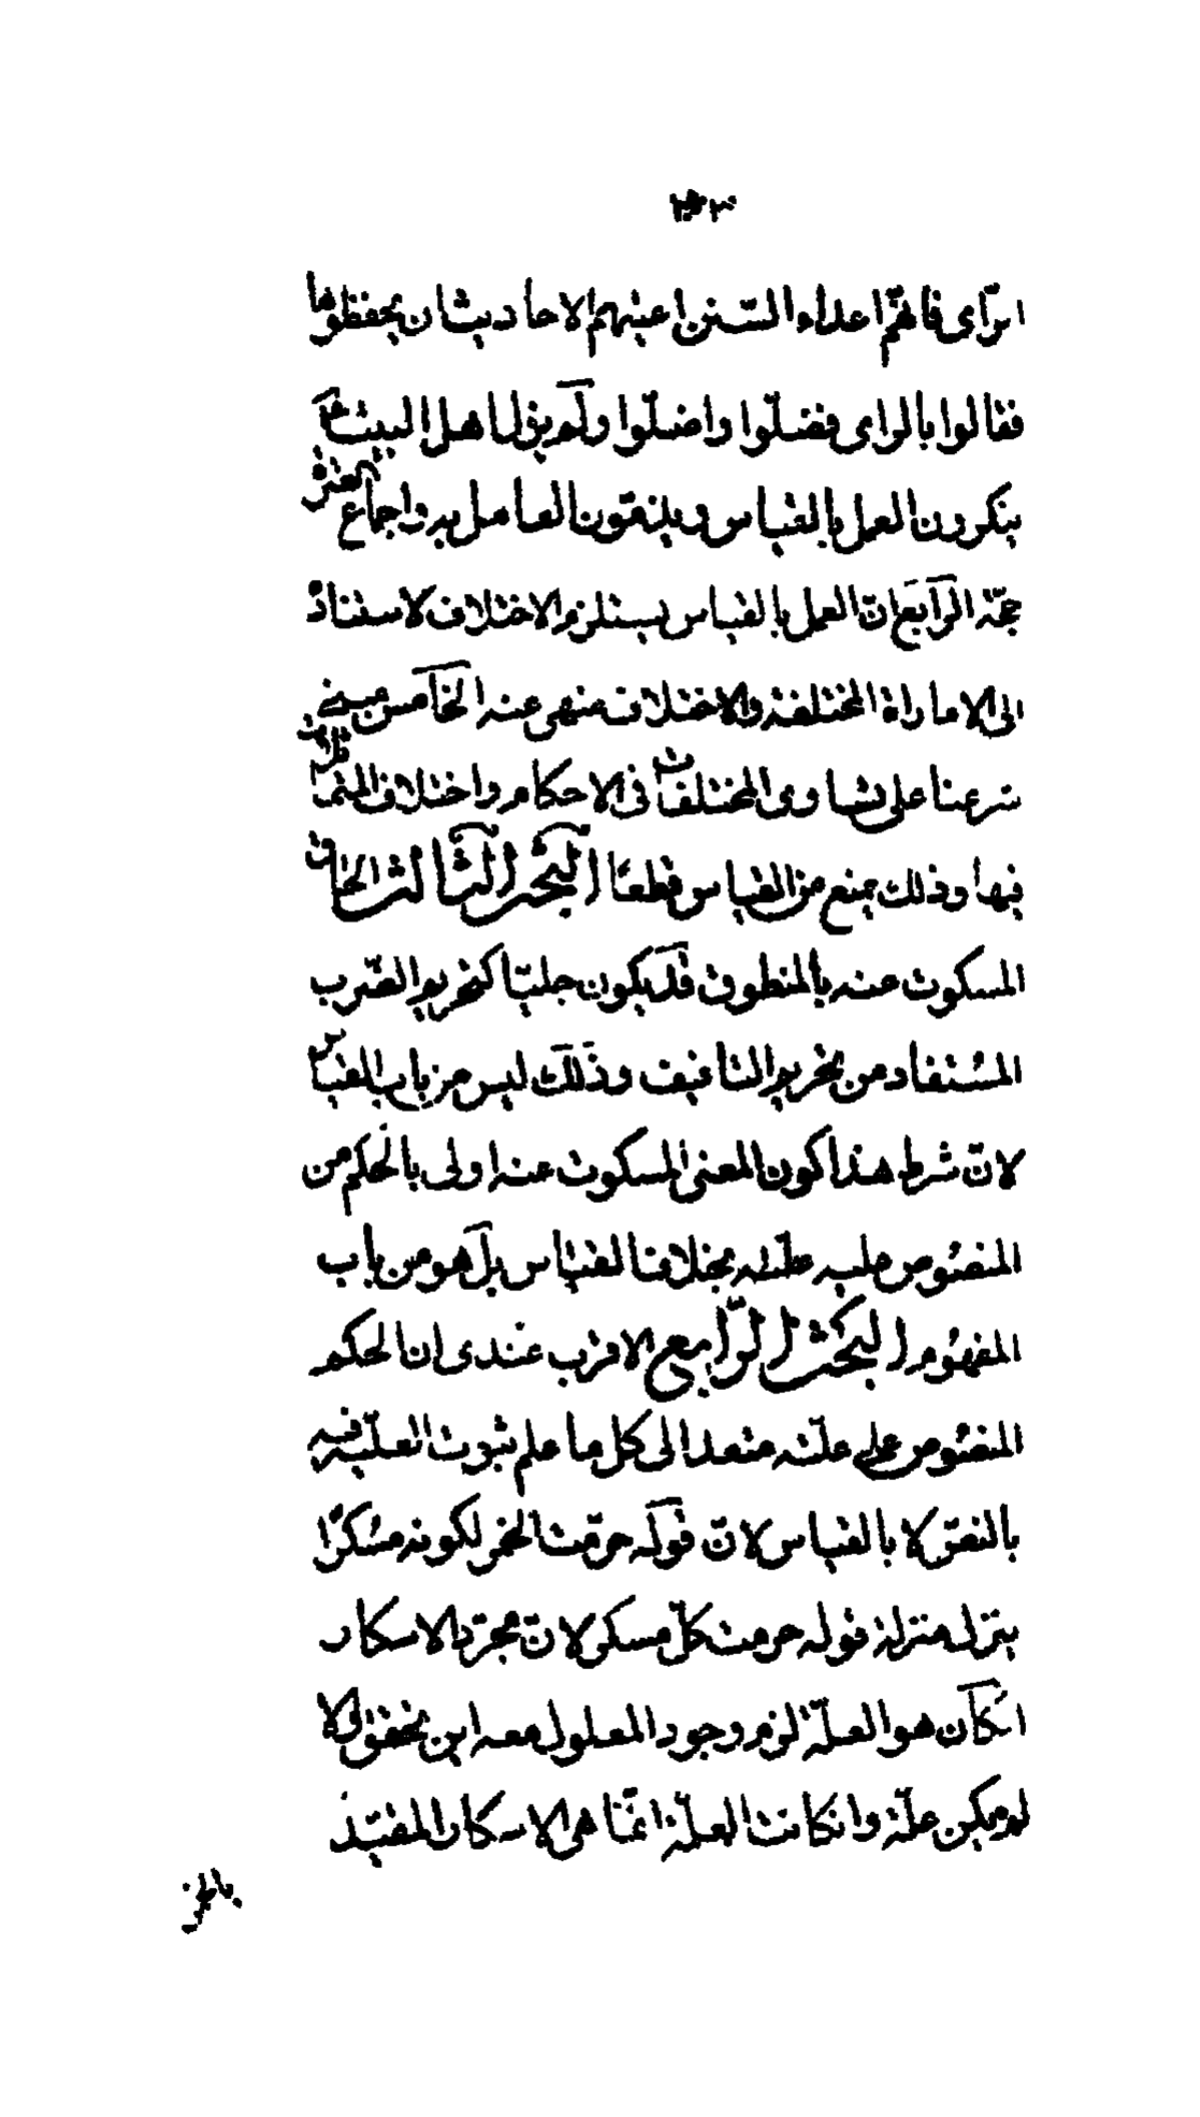 الرّاى فانهّم اعداء السّنن اعيتهم الاحاديث ان يحفظوها
فقالوا بالراى فضلّوا واضلّوا ولم يزل اهل البيت ع
ينكرون العمل بالقياس ويذمّون العامل به واجماع العترة
حجّة الرّابع انّ العمل بالقياس يستلزم الاختلاف لاستناده
الى الامارات المختلفة والاختلاف منهى عنه الخامس مبنى
شرعنا على تساوى المختلفات فى الاحكام واختلاف المتماثلات
فيها وذلك يمنع من القياس قطعًا البحث الثّالث الحاق
المسكوت عنه بالمنطوق قد يكون جليّا كتحريم الضّرب
المستفاد من تحريم التافيف وذلك ليس من باب القياس
لانّ شرط هذا كون المعنى المسكوت عنه اولى بالحكم من
المنصوص عليه علّته بخلاف القياس بل هو من باب
المفهوم البحث الرّابع الاقرب عندى ان الحكم
المنصوص على علّته متعد الى كل ما علم ثبوت العلّة فيه
بالنصّ لا بالقياس لانّ قوله حرّمت الخمر لكونه مسكرًا
ينزل منزلة قوله حرمت كلّ مسكر لانّ مجرّد الاسكار
انكان هو العلّة لزم وجود المعلول معه اين تحقق والا
لم يكن علّة وانكانت العلّة انّما هى الاسكار المقيّد